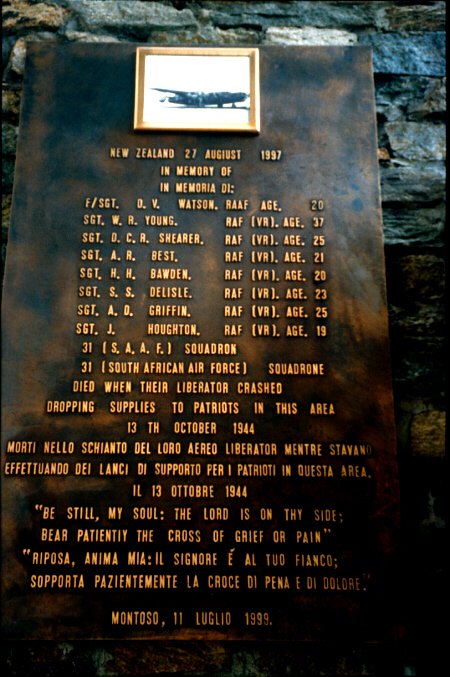 NEW ZEALAND 27 AUGIUST 1997
IN MEMORY OF
IN MEMORIA DI:
F/SGT. D. V. WATSON. RAAF AGE. 20
SGT. W. R. YOUNG. RAF (VR). AGE. 37
SGT. D. C. R. SHEARER. RAF (VR). AGE. 25
SGT. A. R. BEST. RAF (VR). AGE. 21
SGT. H. H. BAWDEN. RAF (VR). AGE. 20
SGT. S. S. DELISLE. RAF (VR). AGE. 23
SGT. A. D. GRIFFIN. RAF (VR). AGE. 25
SGT. J. HOUGHTON. RAF (VR). AGE. 19
31 (S. A. A. F.) SQUADRON
31 (SOUTH AFRICAN AIR FORCE) SQUADRONE
DIED WHEN THEIR LIBERATOR CRASHED
DROPPING SUPPLIES TO PATRIOTS IN THIS AREA
13 TH OCTOBER 1944
MORTI NELLO SCHIANTO DEL LORO AEREO LIBERATOR MENTRE STAVANO
EFFETTUANDO DEI LANCI DI SUPPORTO PER I PATRIOTI IN QUESTA AREA.
IL 13 OTTOBRE 1944
"BE STILL, MY SOUL: THE LORD IS ON THY SIDE;
BEAR PATIENTIY THE CROSS OF GRIEF OR PAIN"
"RIPOSA, ANIMA MIA: IL SIGNORE É AL TUO FIANCO;
SOPPORTA PAZIENTEMENTE LA CROCE DI PENA E DI DOLORE."
MONTOSO, 11 LUGLIO 1999.